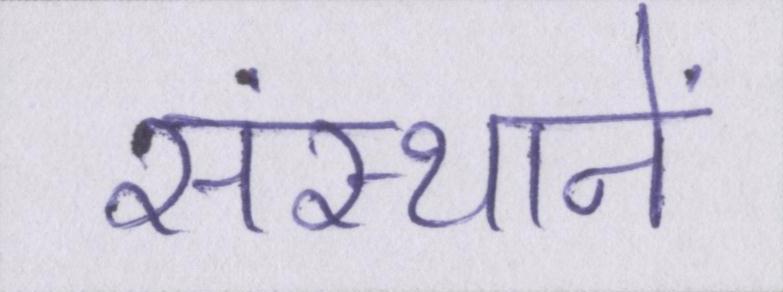 संस्थानें